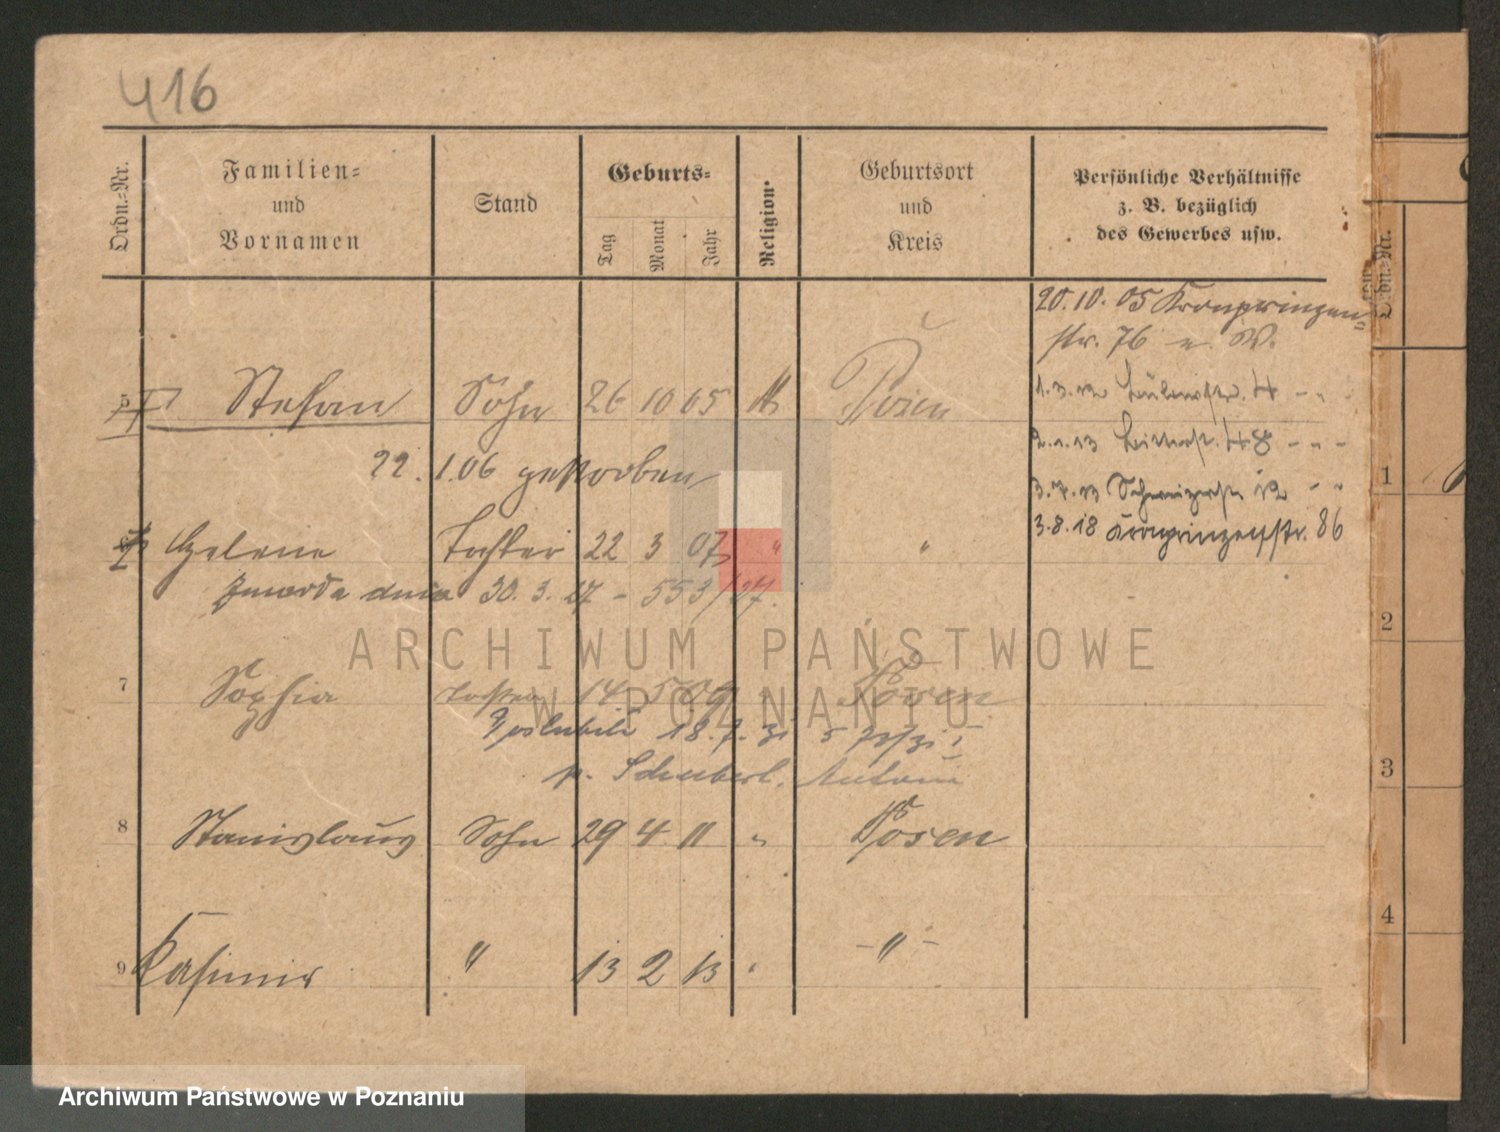 416
Ordn.=Nr.
Familien=
und
Vornamen
Stand
Geburts=
Tag
Monat
Jahr
Religion.
Geburtsort
und
Kreis
Persönliche Verhältnisse
z. B. bezüglich
des Gewerbes usw.
20. 10. 05 Kronprinzen
str. 76 u. W.
5 Stefan Sohn 26 10 05 Posen
1. 3. 12 4 - " -
22. 1. 06 gestorben
2. 1. 13 48 - - -
3. 7. 13 Schweizerstr. 12 - "
6 Helene Tochter 22 3 07 " "
3. 8. 18 Kronprinzenstr. 86
Zmarła dnia 30. 3. 27 - 553/27.
7 Sophia Tochter 14 5 09 " Posen
Poślubiła 18. 7. 31
p. Schubert, Antoni
8 Stanislaus Sohn 29 4 11 " Posen
9 Kasimir " 13 2 13 " - " -
Ordn.=Nr.
1
2
3
4
ARCHIWUM PAŃSTWOWE
W POZNANIU
Archiwum Państwowe w Poznaniu